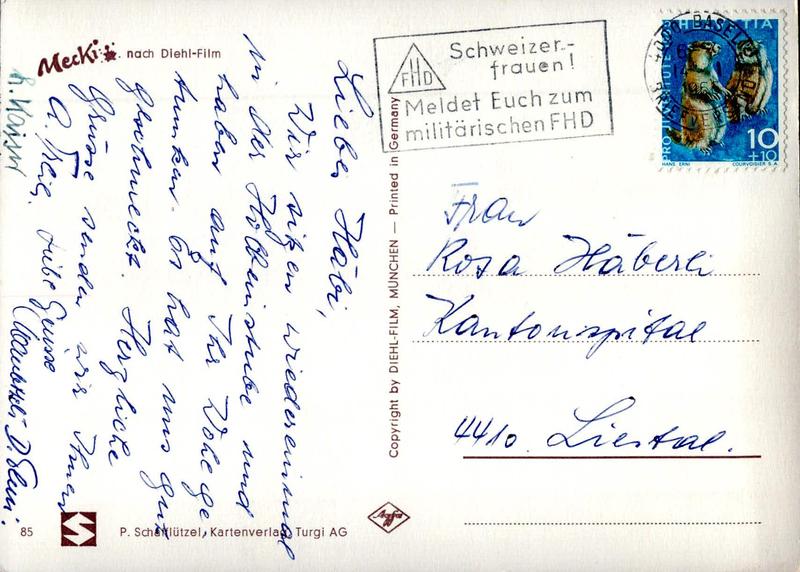 Mecki nach Diehl-Film
Schweizer-
frauen!
FHD
Meldet Euch zum
militärischen FHD
HELVETIA
PRO JUVENTUTE
BASEL
10
+10
HANS ERNI
COURVOISIER S.A.
Liebe Häbi,
Wir sitzen wiedereinmal
in der Holbeinstube und
haben auf Ihr Wohl ge-
trunken. Es hat uns gut
geschmeckt. Herzliche
Grüsse senden wir Ihnen
Liebe Grüsse
Frau
Rosa Häberli
Kantonspital
4410. Liestal.
Copyright by DIEHL-FILM, MÜNCHEN — Printed in Germany
85
P. Schifflützel, Kartenverlag, Turgi AG
Agfa